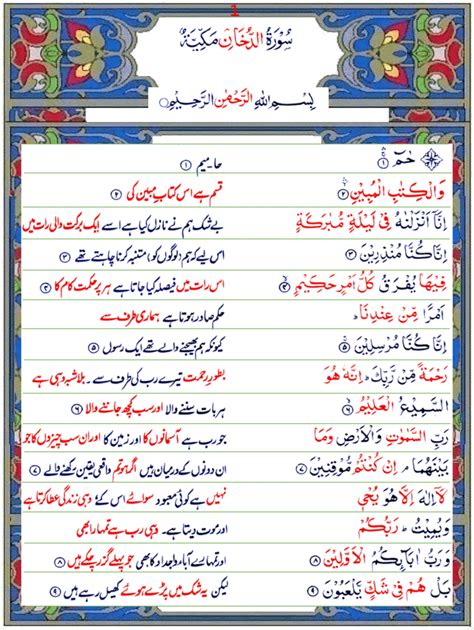 1
سُوۡرَةُ الدُّخَانِ مَكِّيَّةٌ
بِسۡمِ اللهِ الرَّحۡمٰنِ الرَّحِيۡمِ
حٰمٓ ۚ﴿۱﴾ حا-میم ﴿۱﴾
وَالۡكِتٰبِ الۡمُبِيۡنِ ۙ﴿۲﴾ قسم ہے اس کتابِ مبین کی ﴿۲﴾
اِنَّاۤ اَنۡزَلۡنٰهُ فِىۡ لَيۡلَةٍ مُّبٰرَكَةٍ بے شک ہم نے نازل کیا ہے اسے ایک برکت والی رات میں
اِنَّا كُنَّا مُنۡذِرِيۡنَ ﴿۳﴾ اس لیے کہ ہم (لوگوں کو) متنبہ کرنا چاہتے تھے ﴿۳﴾
فِيۡهَا يُفۡرَقُ كُلُّ اَمۡرٍ حَكِيۡمٍ ۙ﴿۴﴾ اس رات میں فیصلہ کیا جاتا ہے ہر پُر حکمت کام کا ﴿۴﴾
اَمۡرًا مِّنۡ عِنۡدِنَا ؕ حکم صادر ہوتا ہے ہماری طرف سے
اِنَّا كُنَّا مُرۡسِلِيۡنَ ۚ﴿۵﴾ کیونکہ ہم بھیجنے والے تھے ایک رسول ﴿۵﴾
رَحۡمَةً مِّنۡ رَّبِّكَ ؕ اِنَّهٗ هُوَ بطورِ رحمت تیرے رب کی طرف سے ۔ بلاشبہ وہی ہے
السَّمِيۡعُ الۡعَلِيۡمُ ۙ﴿۶﴾ ہر بات سننے والا اور سب کچھ جاننے والا ﴿۶﴾
رَبِّ السَّمٰوٰتِ وَالۡاَرۡضِ وَمَا جو رب ہے آسمانوں کا اور زمین کا اور ان سب چیزوں کا جو
بَيۡنَهُمَا ۘ اِنۡ كُنۡتُمۡ مُّوۡقِنِيۡنَ ﴿۷﴾ ان دونوں کے درمیان ہیں اگر ہو تم واقعی یقین رکھنے والے ﴿۷﴾
لَاۤ اِلٰهَ اِلَّا هُوَ يُحۡىٖ نہیں ہے کوئی معبود سوائے اس کے وہی زندگی عطا کرتا ہے
وَيُمِيۡتُ ؕ رَبُّكُمۡ اور موت دیتا ہے۔ وہی رب ہے تمہارا بھی
وَرَبُّ اٰبَآئِكُمُ الۡاَوَّلِيۡنَ ﴿۸﴾ اور تمہارے آباء و اجداد کا بھی جو پہلے گزر چکے ہیں ﴿۸﴾
بَلۡ هُمۡ فِىۡ شَكٍّ يَّلۡعَبُوۡنَ ﴿۹﴾ لیکن یہ شک میں پڑے ہوئے کھیل رہے ہیں ﴿۹﴾